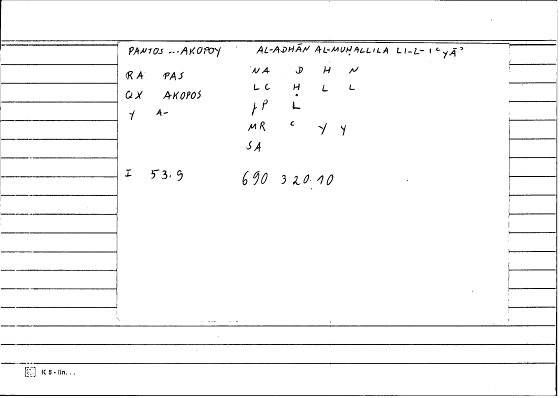 PANTOS ... AKOPOY AL-ADHĀN AL-MUḤALLILA LI-L-IʿYĀʾ
RA PAS NA D H N
QX AKOPOS LC Ḥ L L
Y A- ƒP L
MR ʿ Y Y
SA
I 53.9 690 320.10
K 5 - lin...